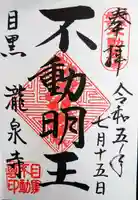 奉拝
令和五年
七月十五日
不動明王
目黒
瀧泉寺